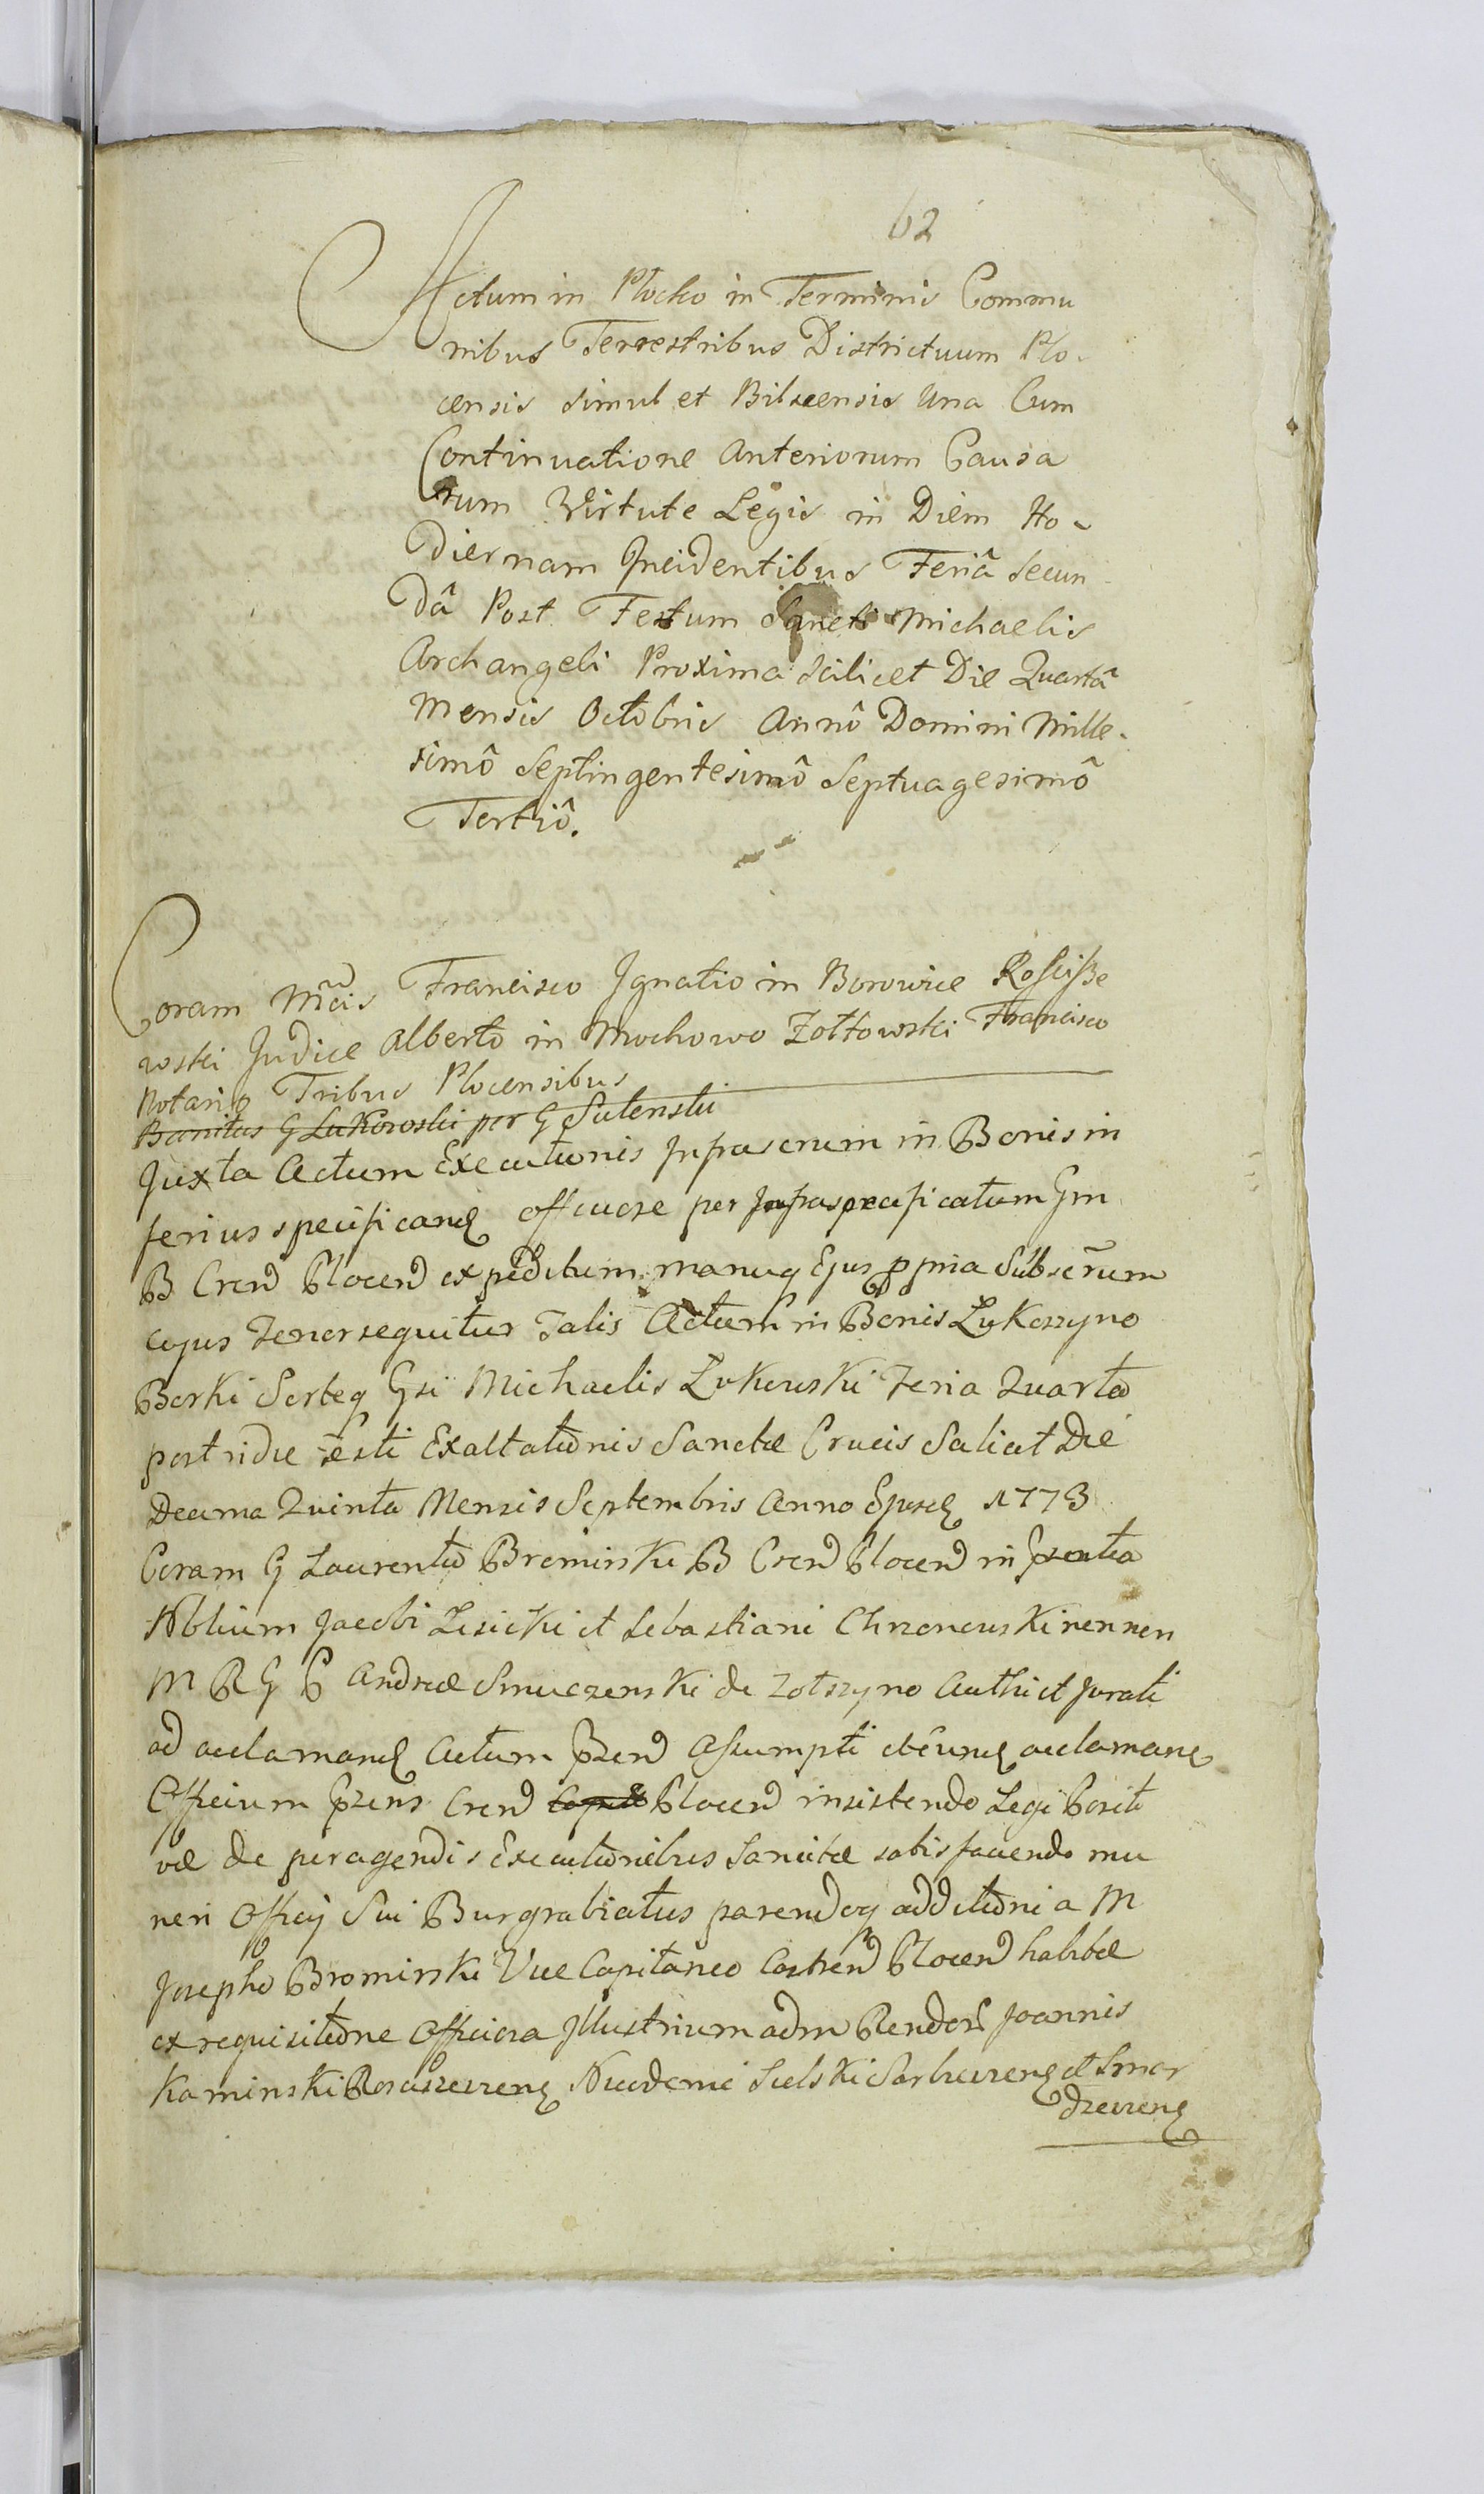 62
Actum in Płocko in Terminis Commu
nibus Terrestribus Districtuum Plo-
censis simul et Bilscensis Una Cum
Continuatione Anteriorum Causa
rum Virtute Legis in Diem Ho-
diernam Incidentibus Feriâ Secun
dâ Post Festum Sancti Michaelis
Archangeli Proxima Scilicet Die Quartâ
Mensis Octobris Annô Domini Mille-
simô Septingentesimô Septuagesimô
Tertiô.
Coram Mcis Francisco Ignatio in Borowice Rościsze
wski Judice Alberto in Mochowo Zołtowski Francisco
Notario Tribus Plocensibus
Banitus G Lukowski per G Sutenstii
Juxta Actum Executionis in Bonis in
ferius specificand officiose per Infraspecificatum Gm
B Cren Plocen expeditum manuq Ejus ppria Subscrum
cujus Tenor sequitur Talis Actum in Bonis Lukoszyno
Borki Sorteq Gsi Michaelis Lukowski Feria Quarta
postridie festi Exaltationis Sanctæ Crucis Scilicet Die
Decima Quinta Mensis Septembris Anno Ejusd 1773
Coram G Laurentio Brominski B Cren Plocen in prntia
Nblium Jacobi Lisicki et Sebastiani Chronowski nennen
M R G P Andreæ Smuczenski de Zotszyno Authi et Jurati
ad acclamand Actum przen Assumpti acclamanq
Officium przens Cren Plocen insistendo Legi Positi
væ de peragendis Executionibus Sancitæ satisfaciendo mu
neri Officij Sui Burgrabiatus parendoq additioni a M
Josepho Brominski Vice Capitaneo Castren Plocen habitæ
ex requisitione Officiosa Illustrium adm Rendor Joannis
Kaminski Nicodemi Sielski et Smar
dzewen